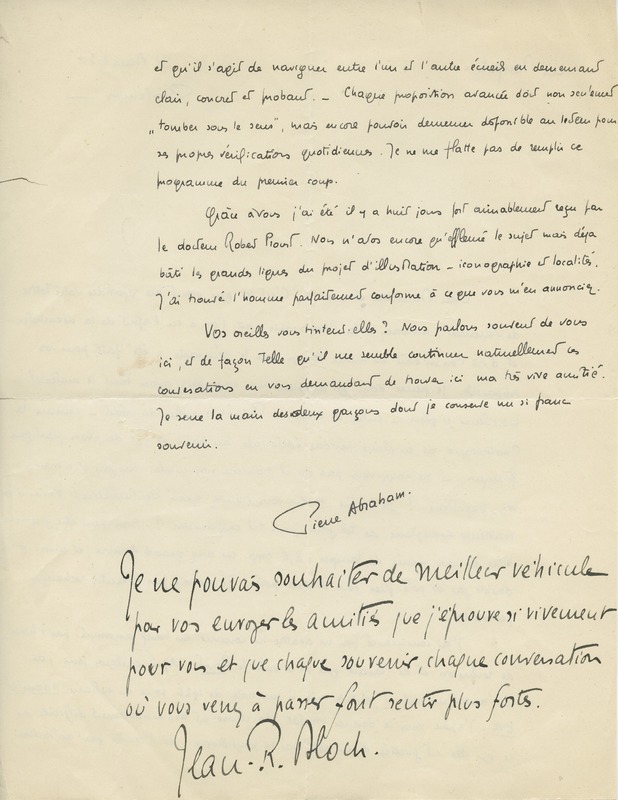 et qu'il s'agit de naviguer entre l'un et l'autre écueils en demeurant
clair, concret et probant. — Chaque proposition avancée doit non seulement
„tomber sous le sens", mais encore pouvoir demeurer disponible au lecteur pour
ses propres vérifications quotidiennes. Je ne me flatte pas de remplir ce
programme du premier coup.
Grâce à vous j'ai été il y a huit jours fort aimablement reçu par
le docteur Robert Proust. Nous n'avons encore qu'effleuré le sujet mais déjà
bâti les grandes lignes du projet d'illustration – iconographie et localités.
J'ai trouvé l'homme parfaitement conforme à ce que vous m'en annonciez.
Vos oreilles vous tintent-elles? Nous parlons souvent de vous
ici, et de façon telle qu'il me semble continuer naturellement ces
conversations en vous demandant de trouver ici ma très vive amitié.
Je serre la main des deux garçons dont je conserve un si franc
souvenir.
Pierre Abraham.
Je ne pouvais souhaiter de meilleur véhicule
pour vous envoyer les amitiés que j'éprouve si vivement
pour vous et que chaque souvenir, chaque conversation
où vous venez à passer font sentir plus fortes.
Jean-R. Bloch.